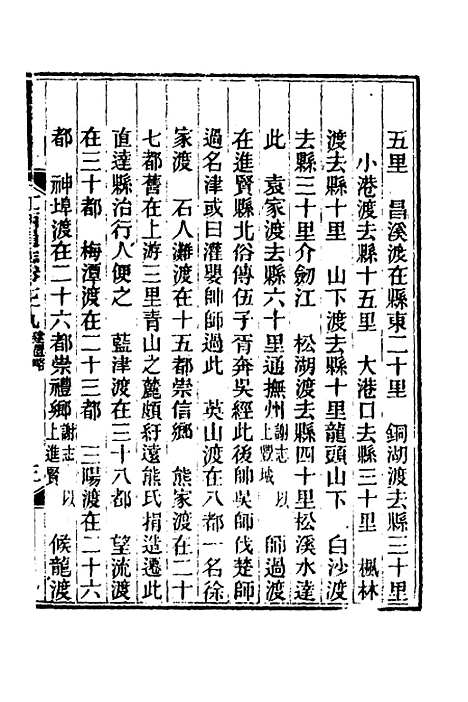 五里　昌溪渡在縣東二十里　銅湖渡去縣三十里
小港渡去縣十五里　大港口去縣三十里　楓林
渡去縣十里　山下渡去縣十里龍頭山下　白沙渡
去縣三十里介劒江　松湖渡去縣四十里松溪水達
此　袁家渡去縣六十里通撫州謝志以上豐城　師過渡
在進賢縣北俗傳伍子胥奔吳經此後帥吳師伐楚師
過名津或曰灌嬰帥師過此　英山渡在八都一名徐
家渡　石人灘渡在十五都崇信鄉　熊家渡在二十
七都舊在上游三里青山之麓頗紆遠熊氏捐造遷此
直達縣治行人便之　藍津渡在三十八都　望流渡
在三十都　梅潭渡在二十三都　三陽渡在二十六
都　神埠渡在二十六都崇禮鄉謝志以上進賢　候龍渡
江西通志卷 九 建置略